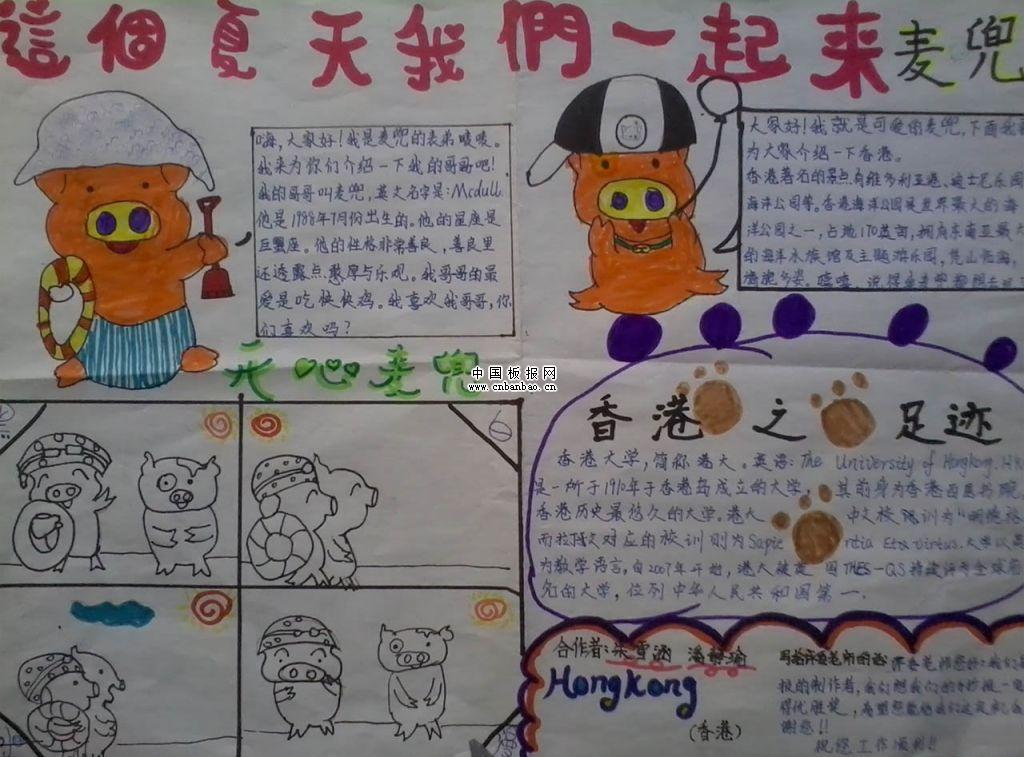 這個夏天我們一起来麦兜
嗨,大家好!我是麦兜的表弟
我来为你们介绍一下我的哥哥吧!
我的哥哥叫麦兜,英文名字是:Mcdull
他是1988年7月份出生的。他的星座是
巨蟹座。他的性格非常善良,善良里
还透露点憨厚与乐观。我哥哥的最
爱是吃快快鸡。我喜欢我哥哥,你
们喜欢吗?
大家好!我就是可爱的麦兜,下面我
为大家介绍一下香港。
香港著名的景点有维多利亚港、迪士尼乐园
海洋公园等。香港海洋公园是世界最大的海
洋公园之一,占地170英亩,拥有东南亚最大
的海洋水族馆及主题游乐园,凭山临海,
开心麦兜
中国板报网
www.cnbanbao.cn
香港之足迹
香港大学,简称港大。英语:The University of Hongkong.HK
是一所于1910年于香港岛成立的大学,其前身为香港西医书院
香港历史最悠久的大学。港大中文校训为"明德格
而拉丁文对应的校训则为Sapientia Et
为教学语言,自2007年开始,港大被英国THES-QS
的大学,位列中华人民共和国第一.
合作者:
Hongkong
(香港)
谢您!!
祝您工作顺利!!